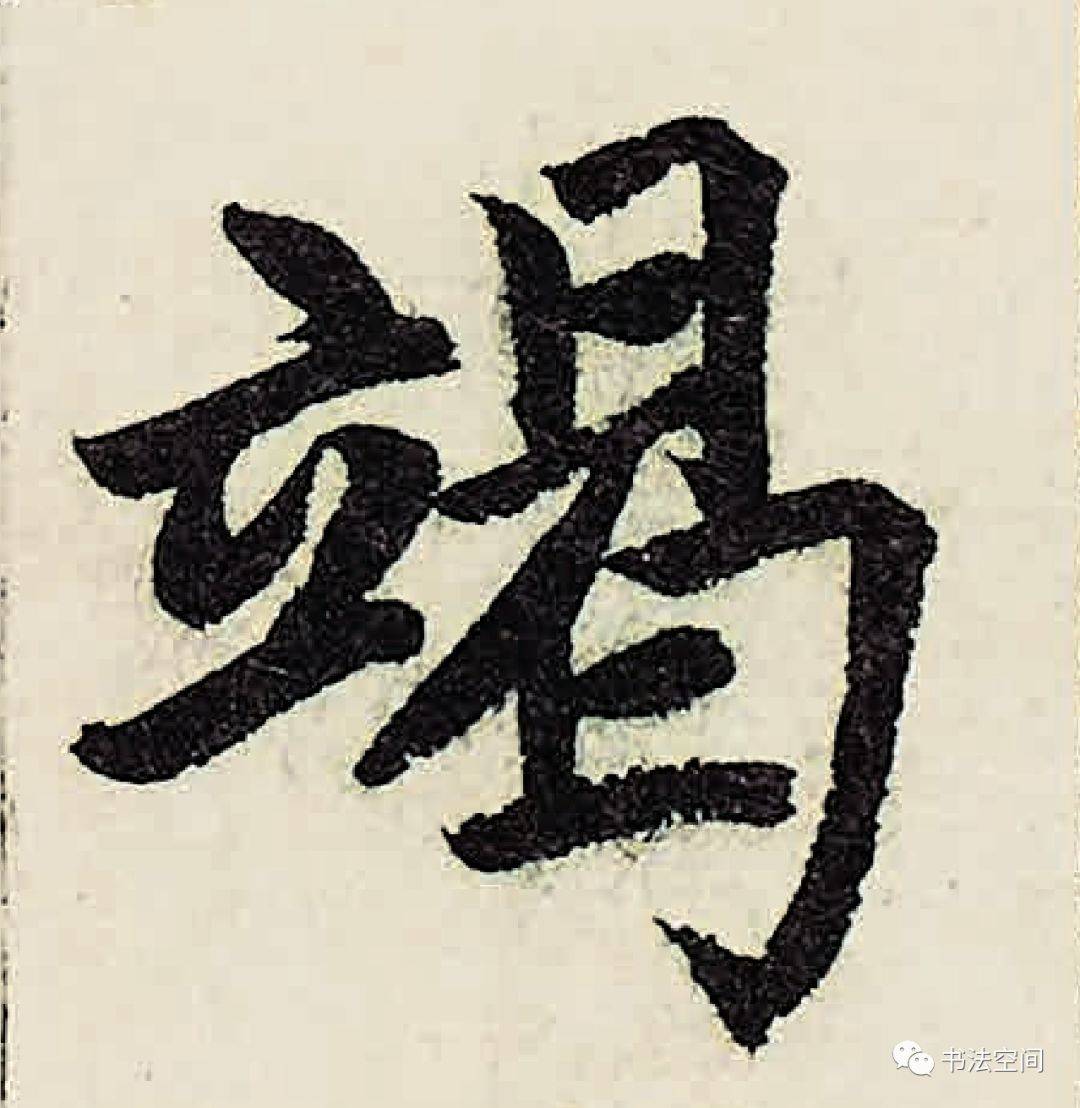 竭
书法空间